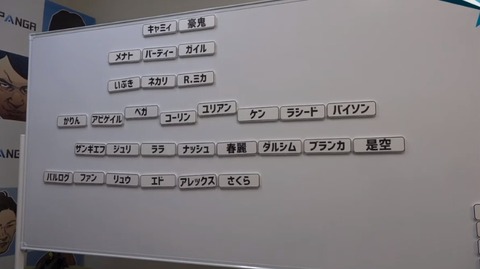 PANGA
キャミィ 豪鬼
メナト バーディー ガイル
いぶき ネカリ R.ミカ
かりん アビゲイル ベガ コーリン ユリアン ケン ラシード バイソン
ザンギエフ ジュリ ララ ナッシュ 春麗 ダルシム ブランカ 是空
バルログ ファン リュウ エド アレックス さくら